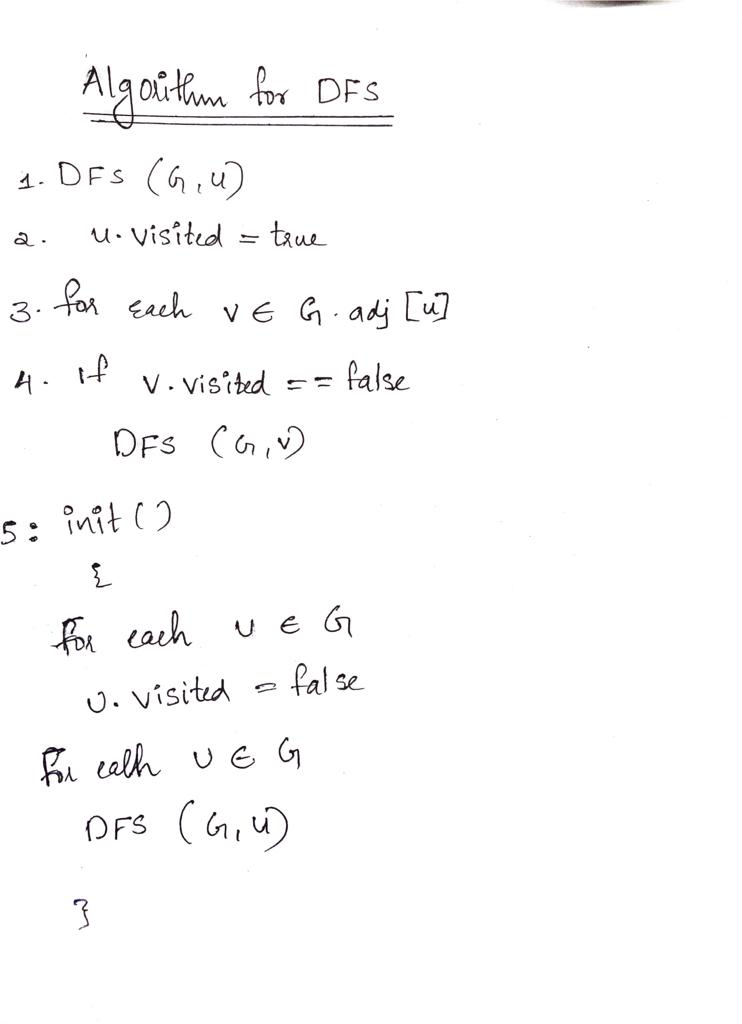 Algorithm for DFS
1. DFS (G, u)
2. u. visited = true
3. for each v ∈ G. adj [u]
4. if v. visited == false
DFS (G, v)
5: init ()
{
for each u ∈ G
u. visited = false
for each u ∈ G
DFS (G, u)
}